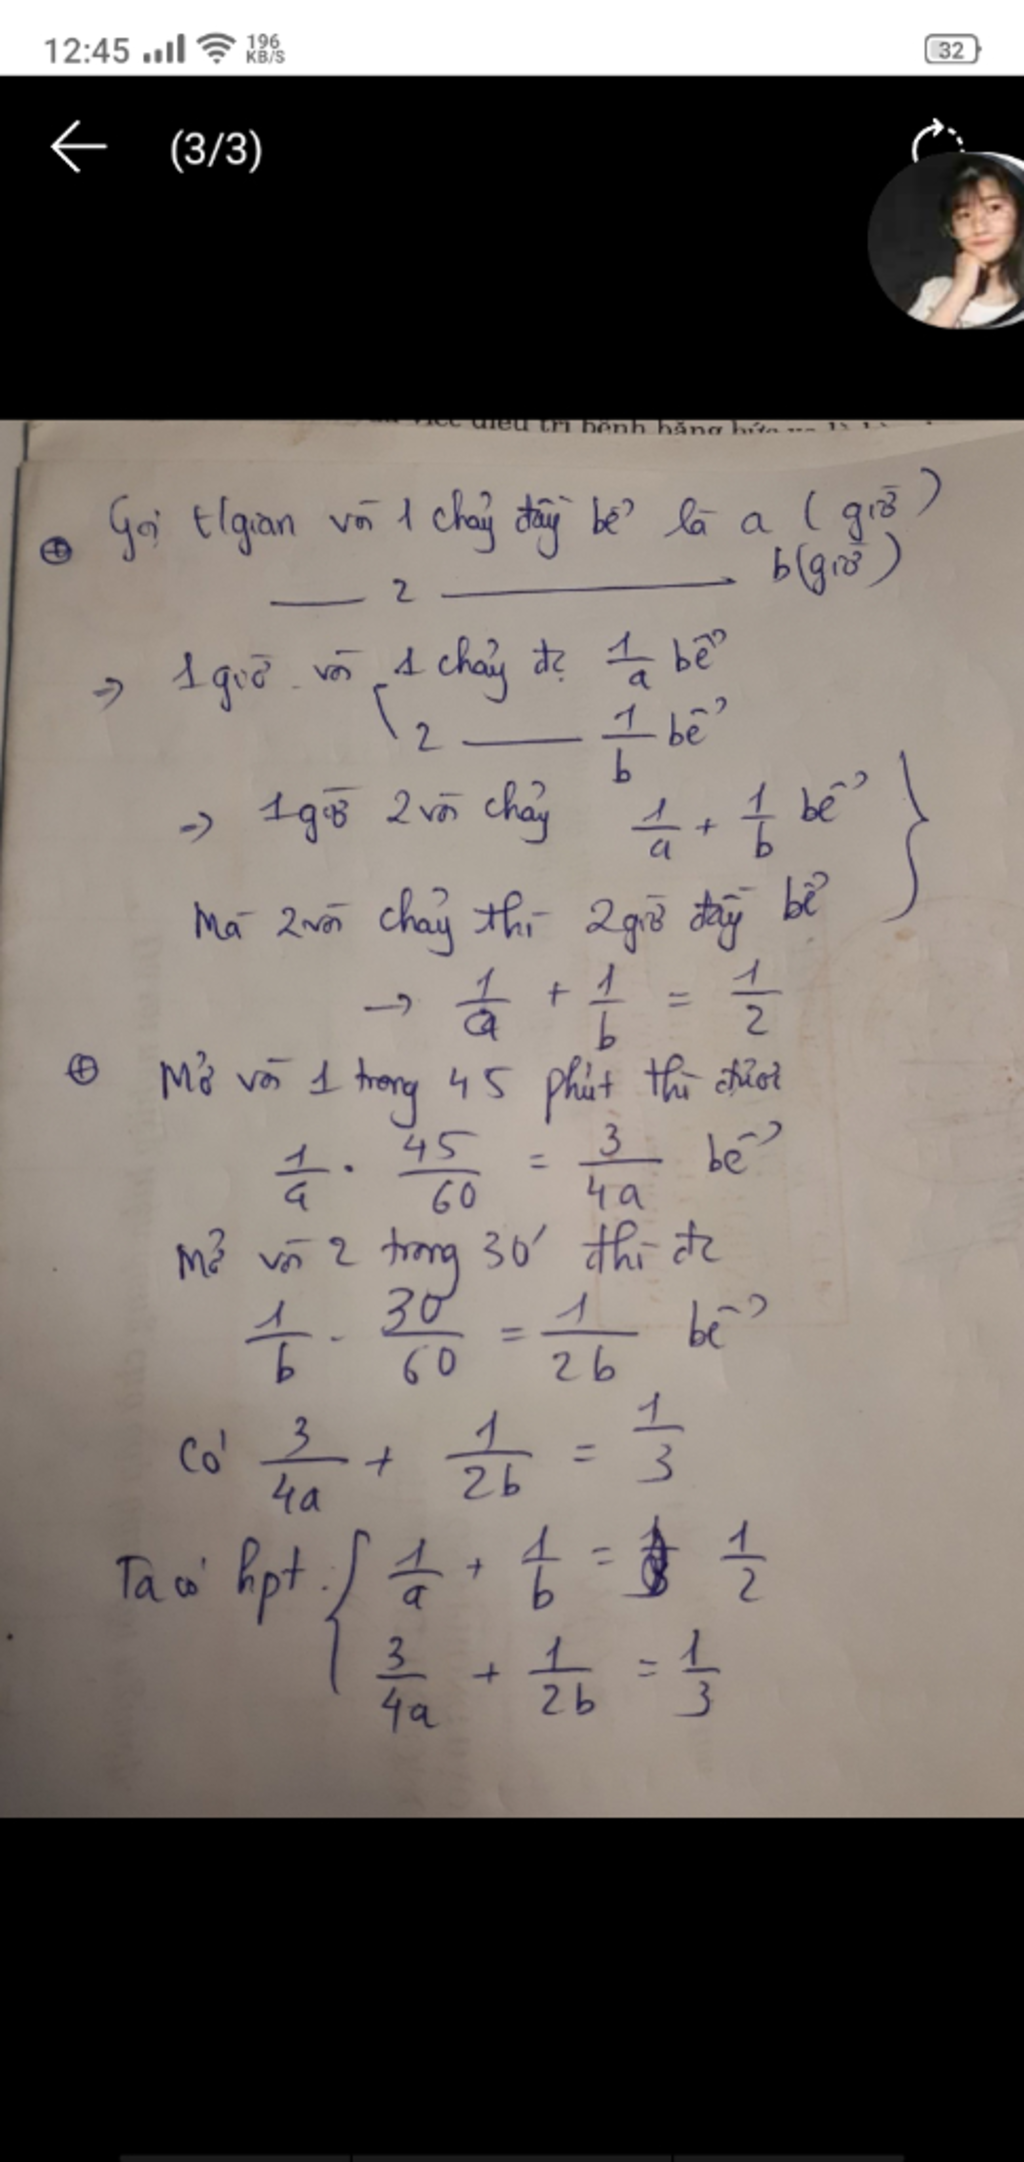 12:45 196 KB/S 32
(3/3)
việc điều trị bệnh bằng
Gọi t/gian vòi 1 chảy đầy bể là a (giờ)
2 b(giờ)
⇒ 1 giờ vòi 1 chảy đc 1/a bể
2 1/b bể
⇒ 1 giờ 2 vòi chảy 1/a + 1/b bể
Mà 2 vòi chảy thì 2 giờ đầy bể
→ 1/a + 1/b = 1/2
⊕ Mở vòi 1 trong 45 phút thì được
1/a . 45/60 = 3/4a bể
Mở vòi 2 trong 30' thì đc
1/b . 30/60 = 1/2b bể
Có 3/4a + 1/2b = 1/3
Ta có hpt: { 1/a + 1/b = 1/2
3/4a + 1/2b = 1/3